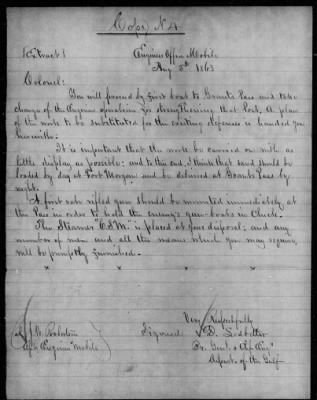 Copy No 4
(Extract)
Engineer Office Mobile
Aug 8th 1863
Colonel:
You will proceed by first boat to Grants Pass and take
charge of the Engineer operations for strengthening that Post. A plan
of the work to be substituted for the existing defenses is handed you
herewith.
It is important that the work be carried on with as
little display as possible: and to this end, I think that sand should be
loaded by day at Fort Morgan and be delivered at Grants Pass by
night.
A first rate rifled gun should be mounted immediately at
the Pass in order to hold the enemy's gun-boats in Check.
The Steamer "C.S.M." is placed at your disposal; and any
number of men and all the means which you may require,
will be promptly furnished.
x x x x
Very Respectfully
J. W. Robertson Signed D. Leadbetter
Engineer Mobile Br. Genl. & Chf. Eng.
Departmt of the Gulf